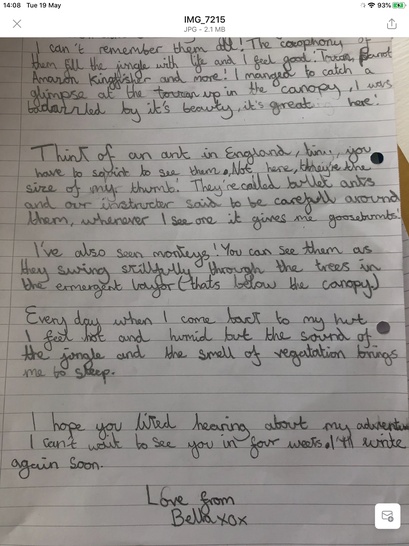 14:08 Tue 19 May 93%
IMG_7215
JPG - 2.1 MB
I can't remember them all! The cacophony of
them fill the jungle with life and I feel good. Toucan, Parrot
Amazon Kingfisher and more! I manged to catch a
glimpse at the toucan up in the canopy, I was
by it's beauty, it's great here!
Think of an ant in England, tiny, you
have to squint to see them. Not here, they're the
size of my thumb! They're called bullet ants
and our instructor said to be carefull around
them, whenever I see one it gives me goosebumbs!
I've also seen monkeys! You can see them as
they swing skillfully through the trees in
the ermergent layer (thats below the canopy)
Every day when I come back to my hut
I feel hot and humid but the sound of
the jungle and the smell of vegatation brings
me to sleep.
I hope you liked hearing about my adventure
I can't wait to see you in four weeks. I'll write
again soon.
Love from
Bella xox